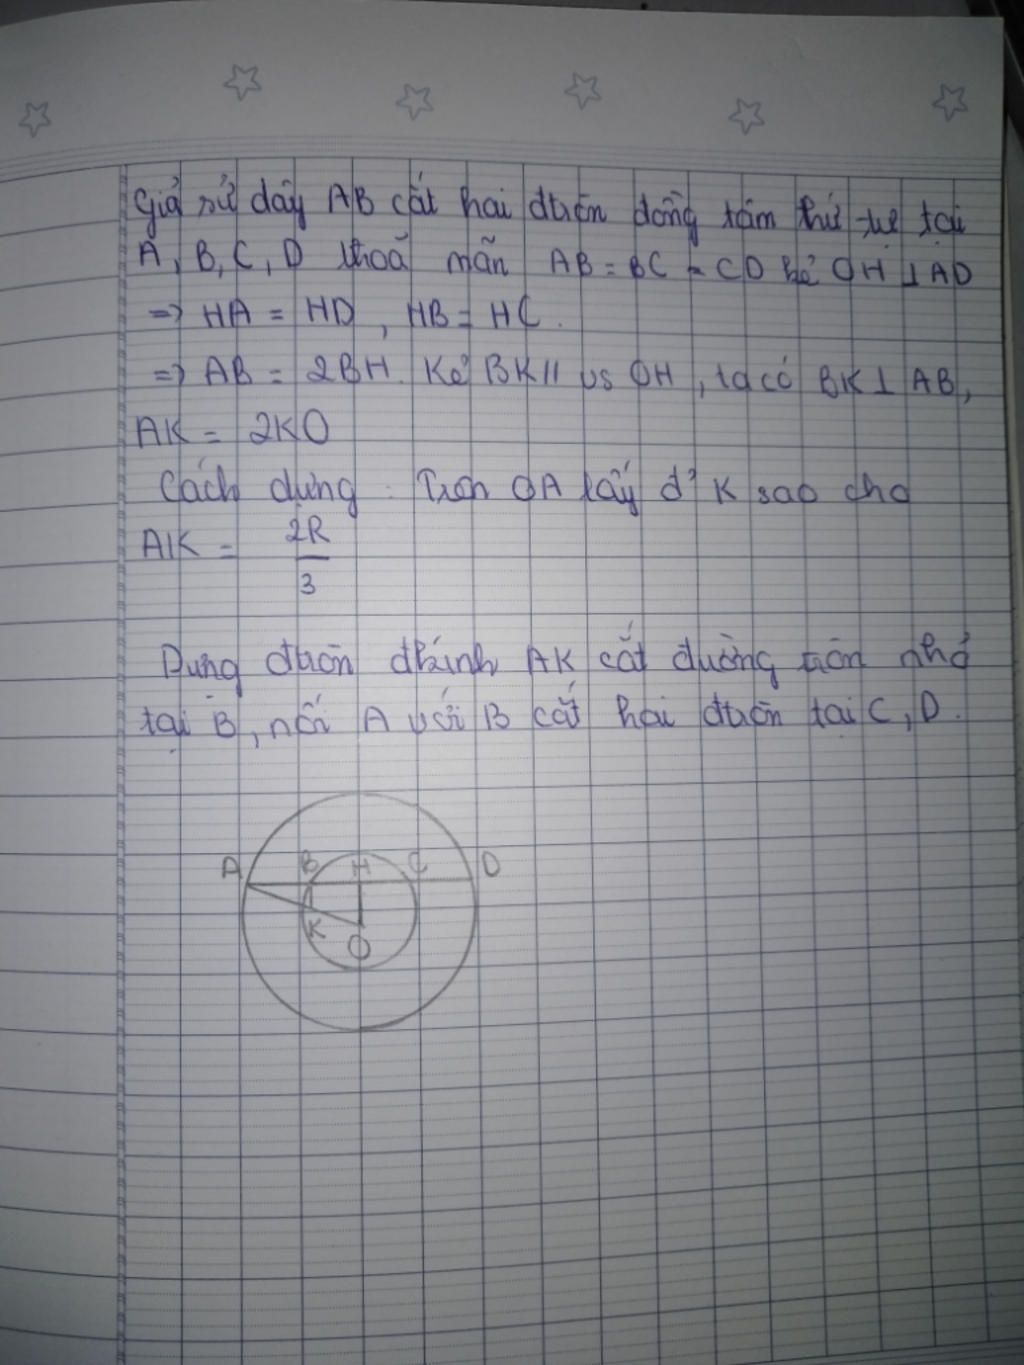 Giả sử dây AB cắt hai đtròn đồng tâm thứ tự tại
A, B, C, D thoã mãn AB = BC = CD kẻ OH ⊥ AD
=> HA = HD, HB = HC.
=> AB = 2BH. Kẻ BK // vs OH, ta có BK ⊥ AB,
AK = 2KO
Cách dựng : Trên OA lấy đ' K sao cho
AK = 2R/3
Dựng đtròn đkính AK cắt đường tròn nhỏ
tại B, nối A với B cắt hai đtròn tại C, D.
A B H C D
K
O